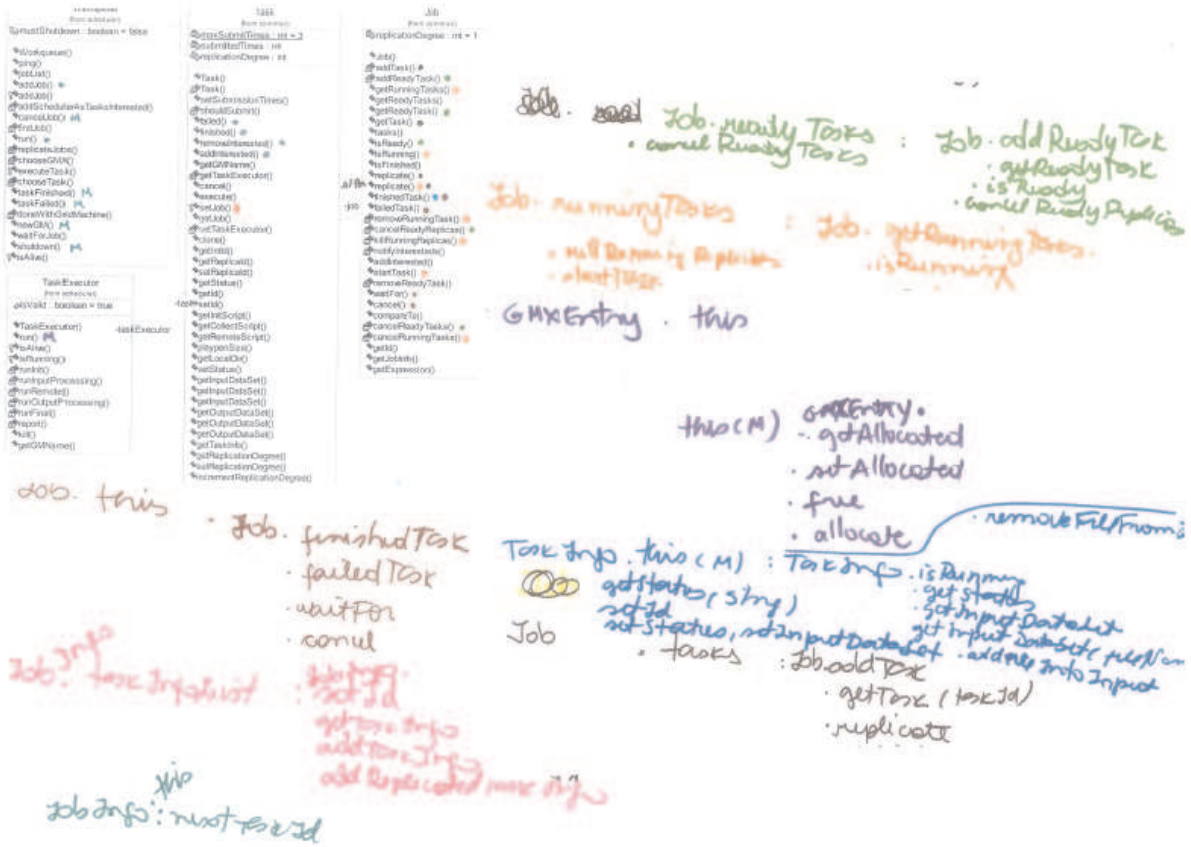 (from scheduler)
mustShutdown : boolean = false
Workqueue()
ping()
jobList()
addJob()
addJob()
addSchedulerAsTasksInterested()
cancelJob() M
findJob()
run()
replicateJobs()
chooseGM()
executeTask()
chooseTask()
taskFinished() M
taskFailed() M
doneWithGridMachine()
newGM() M
waitForJob()
shutdown() M
isAlive()
TaskExecutor
(from scheduler)
isValid : boolean = true
TaskExecutor()
run() M
isAlive()
isRunning()
runInit()
runInputProcessing()
runRemote()
runOutputProcessing()
runFinal()
report()
kill()
getGMName()
-taskExecutor
Task
(from common)
maxSubmitTimes : int = 3
submittedTimes : int
replicationDegree : int
Task()
Task()
setSubmissionTimes()
shouldSubmit()
failed()
finished()
removeInterested()
addInterested()
getGMName()
getTaskExecutor()
cancel()
execute()
setJob()
getJob()
setTaskExecutor()
clone()
getInitId()
getReplicaId()
setReplicaId()
getStatus()
getId()
setId()
getInitScript()
getCollectScript()
getRemoteScript()
playpenSize()
getLocalDir()
setStatus()
getInputDataSet()
getInputDataSet()
getInputDataSet()
getOutputDataSet()
getOutputDataSet()
getOutputDataSet()
getTaskInfo()
getReplicationDegree()
setReplicationDegree()
incrementReplicationDegree()
-job
Job
(from common)
replicationDegree : int = 1
Job()
addTask()
addReadyTask()
getRunningTasks()
getReadyTasks()
getReadyTask()
getTask()
tasks()
isReady()
isRunning()
isFinished()
replicate()
replicate()
finishedTask()
failedTask()
removeRunningTask()
cancelReadyReplicas()
killRunningReplicas()
notifyInteresteds()
addInterested()
startTask()
removeReadyTask()
waitFor()
cancel()
compareTo()
cancelReadyTasks()
cancelRunningTasks()
getId()
getJobInfo()
getExpression()
Job. readyTasks : Job. addReadyTask
. cancel Ready Tasks . getReadyTask
. isReady
. cancel Ready Replicas
Job. runningTasks : Job. getRunningTasks.
. kill Running Replicas . isRunning
. startTask
GMXEntry . this
this (M) GMXEntry.
. getAllocated
. setAllocated
. free
. allocate
Job. this . Job. finishedTask
. failedTask
. waitFor
. cancel
. removeFileFrom
TaskInfo . this (M) : TaskInfo . isRunning
getStatus (String) . getStatus
setId . getInputDataSet
setStatus, setInputDataSet get Input DataSet (fileNam
. addFile Into Input
Job . tasks : Job. addTask
. getTask (taskId)
. replicate
Job Info. taskInfoList : setId
getTaskInfo
addTaskInfo
add Replicated Task Info
this
JobInfo : nextTaskId